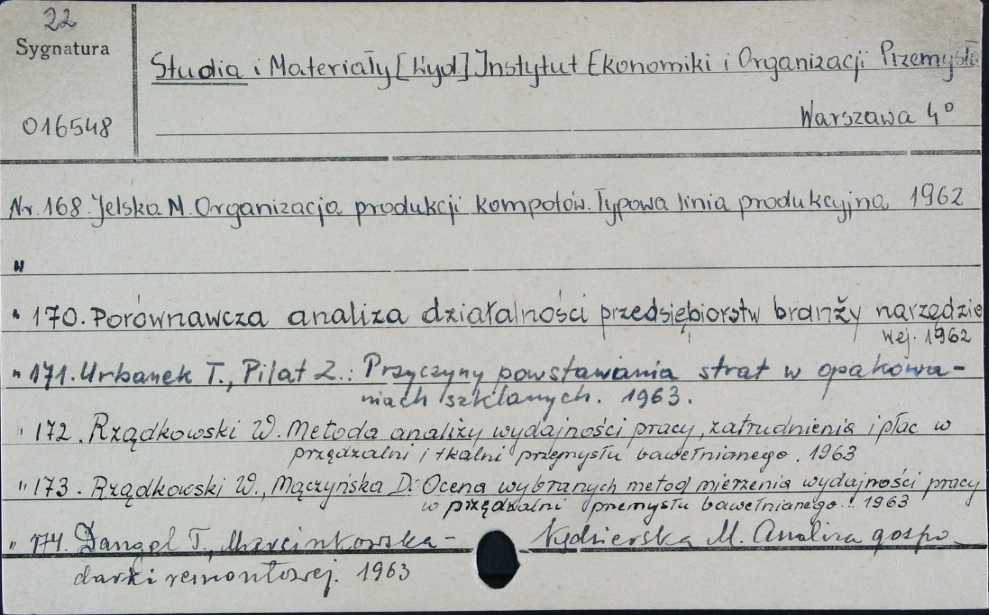 22
Sygnatura
016548
Studia i Materiały [Wyd] Instytut Ekonomiki i Organizacji Przemysłu
Warszawa 4°
Nr. 168. Jelska M. Organizacja produkcji kompotów. Typowa linia produkcyjna 1962
"
" 170. Porównawcza analiza działalności przedsiębiorstw branży narzędzio
wej. 1962
" 171. Urbanek T., Pilat Z.: Przyczyny powstawania strat w opakowa-
niach szklanych. 1963.
" 172. Rządkowski W. Metoda analizy wydajności pracy, zatrudnienia i płac w
przędzalni i tkalni przemysłu bawełnianego. 1963
" 173. Rządkowski W., Mączyńska D.: Ocena wybranych metod mierzenia wydajności pracy
w przędzalni przemysłu bawełnianego. 1963
" 174. Dangel T., Marcinkowska- M. Analiza gospo-
darki remontowej. 1963